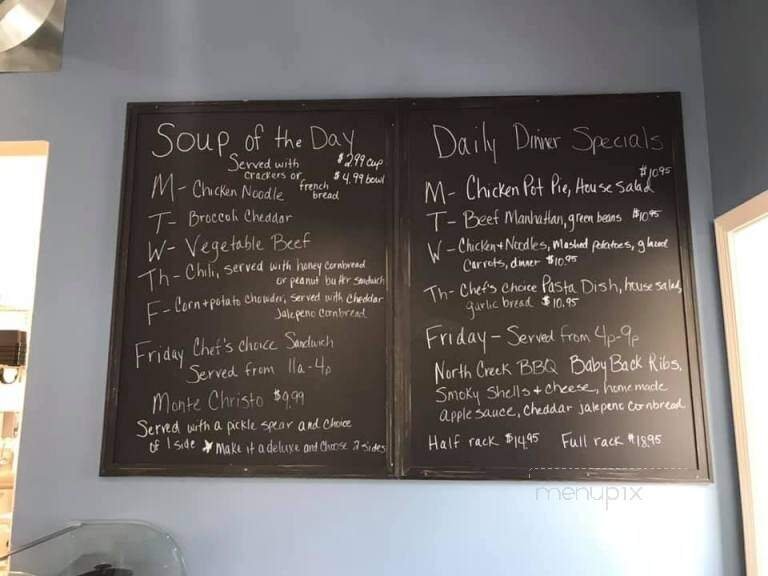 Soup of the Day
Served with $2.99 cup
crackers or french bread $4.99 bowl
M- Chicken Noodle
T- Broccoli Cheddar
W- Vegetable Beef
Th- Chili, served with honey cornbread
or peanut butter sandwich
F- Corn + potato chowder, served with cheddar
jalepeno cornbread
Friday Chef's choice Sandwich
Served from 11a-4p
Monte Christo $9.99
Served with a pickle spear and choice
of 1 side ★ Make it a deluxe and choose 2 sides
Daily Dinner Specials
M- Chicken Pot Pie, House Salad $10.95
T- Beef Manhattan, green beans $10.95
W- Chicken + Noodles, Mashed potatoes, glazed
Carrots, dinner $10.95
Th- Chef's choice Pasta Dish, house salad,
garlic bread $10.95
Friday - Served from 4p-9p
North Creek BBQ Baby Back Ribs,
Smoky Shells + cheese, homemade
applesauce, cheddar jalepeno cornbread
Half rack $14.95 Full rack $18.95
menupix